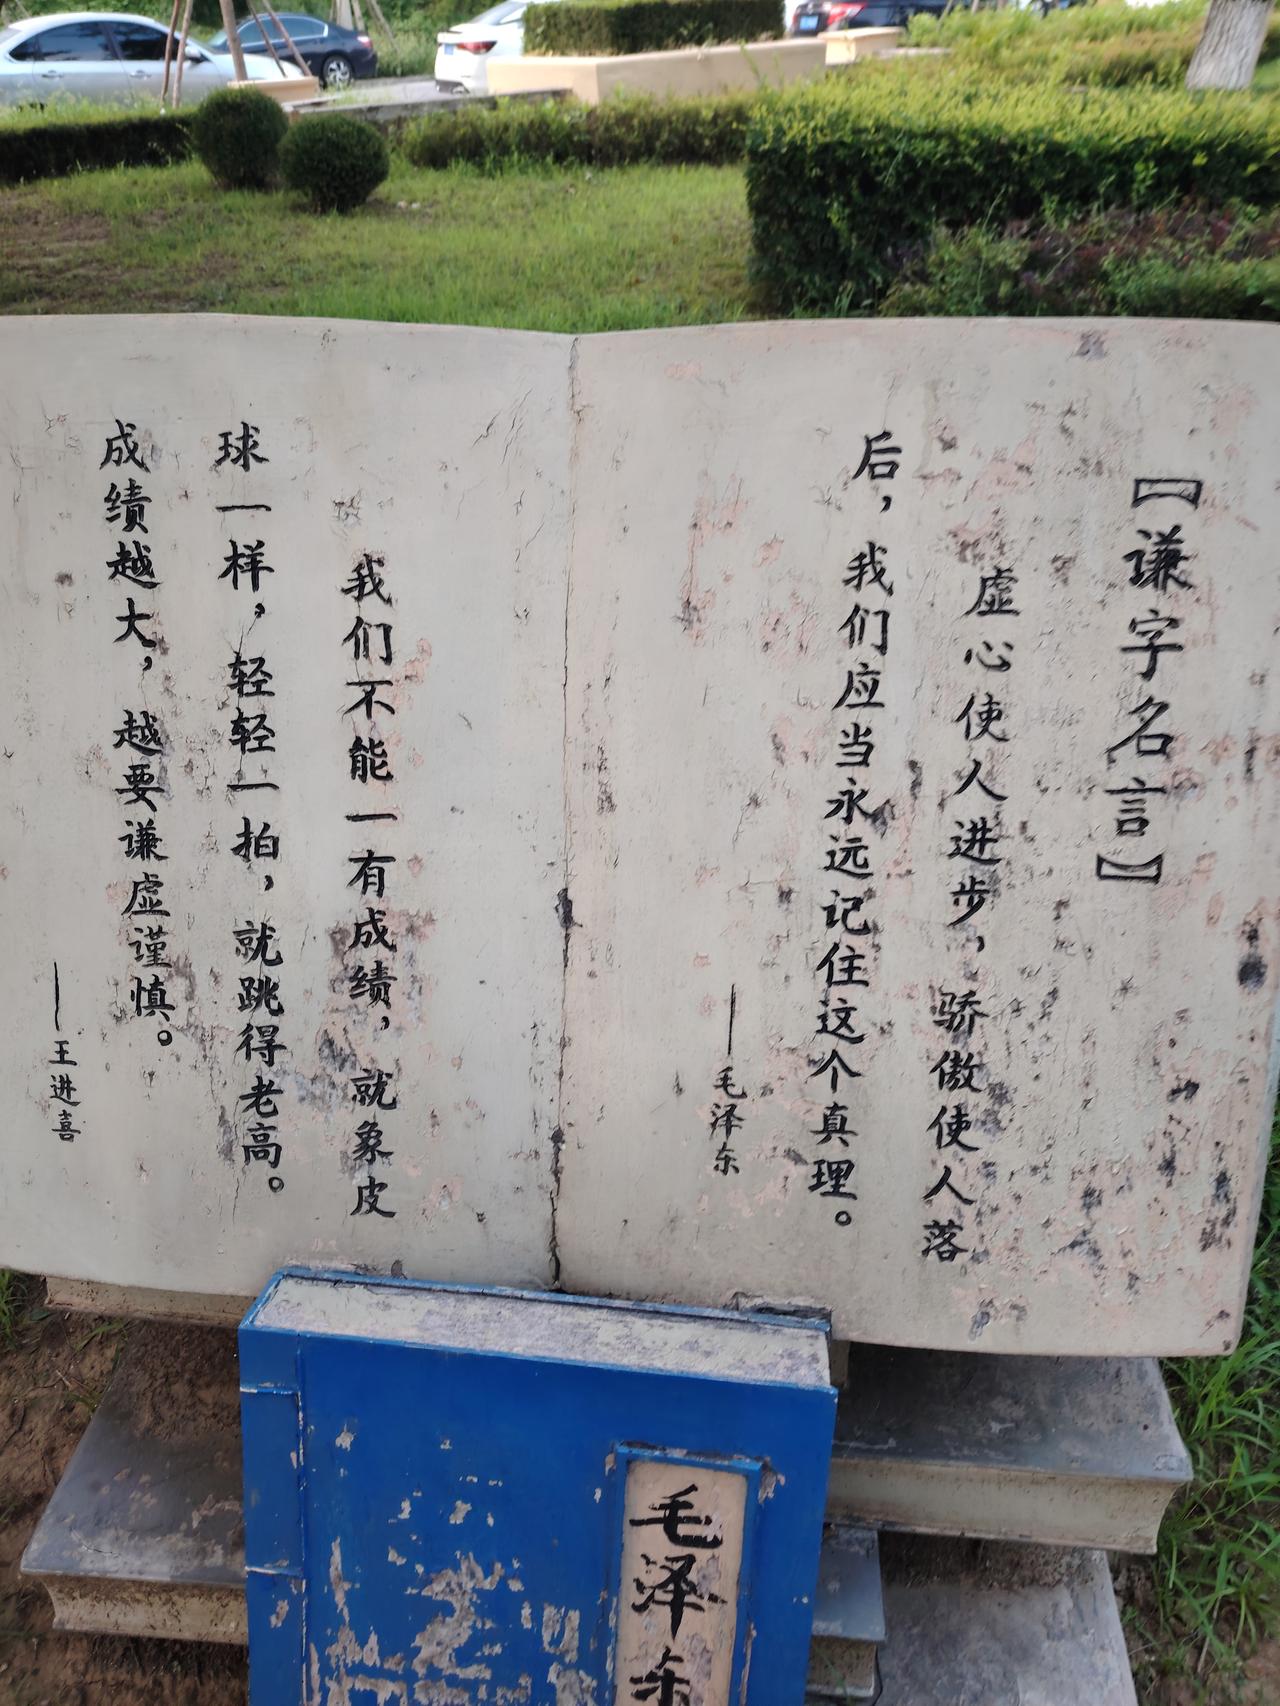 【谦字名言】
虚心使人进步，骄傲使人落
后，我们应当永远记住这个真理。
——毛泽东
我们不能一有成绩，就象皮
球一样，轻轻一拍，就跳得老高。
成绩越大，越要谦虚谨慎。
——王进喜
毛泽东